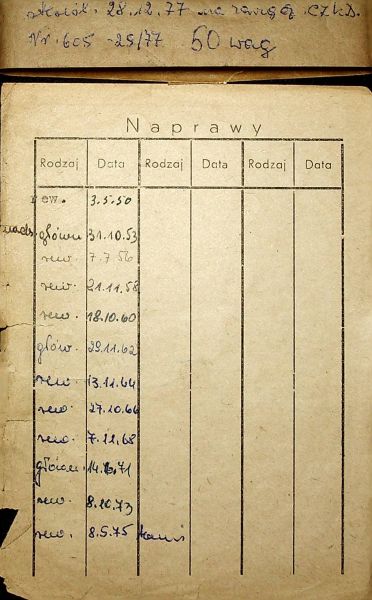 28.12.77 na
Nr. 605 -25/77 50 wag
Naprawy
Rodzaj Data Rodzaj Data Rodzaj Data
rew. 3.5.50
główna 31.10.53
rew. 7.7.56
rew. 21.11.58
rew. 18.10.60
głów. 29.11.62
rew. 13.11.64
rew. 27.10.66
rew. 7.11.68
główn. 71
rew. 8.10.73
rew. 8.5.75